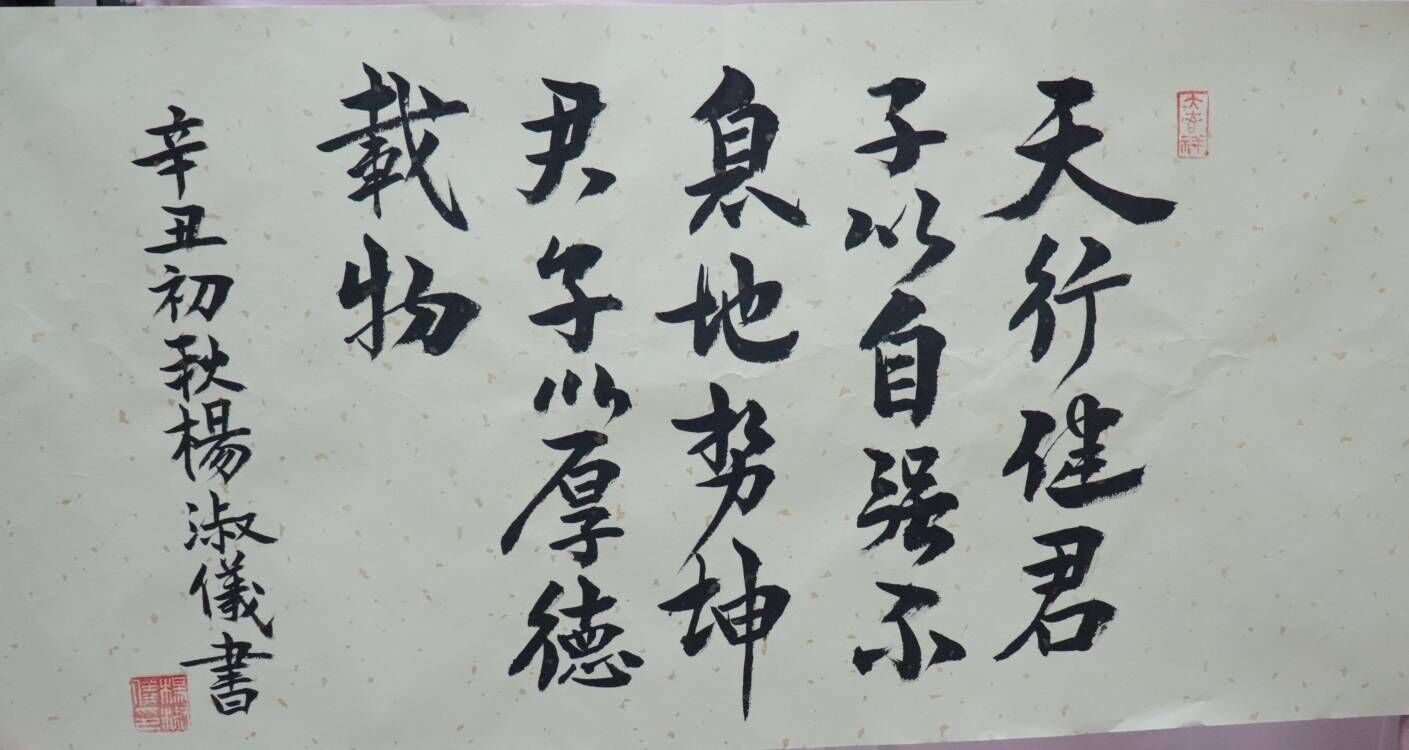 大吉祥
天行健君
子以自强不
息地势坤
君子以厚德
載物
辛丑初秋楊淑儀書
楊淑儀印